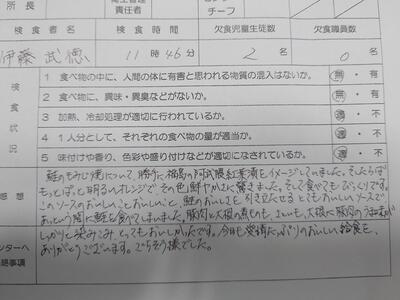 所長
衛生管理
責任者
チーフ
検食者名 検食時間 欠食児童生徒数 欠食職員数
伊藤 武徳 11時46分 2名 0名
検食状況
1 食べ物の中に、人間の体に有害と思われる物質の混入はないか。 無・有
2 食べ物に、異味・異臭などがないか。 無・有
3 加熱、冷却処理が適切に行われているか。 適・不
4 1人分として、それぞれの食べ物の量が適当か。 適・不
5 味付けや香り、色彩や盛り付けなどが適切になされているか。 適・不
感想
鮭のもみじ焼について、勝手に福島の阿武隈紅葉漬をイメージしていました。そしたらば
もっとぱっと明るいオレンジで その色鮮やかさに驚きました。そして食べてもびっくりです。
このソースのおいしいことおいしいこと、鮭のおいしさを引き立たせる とてもおいしいソースで
あっという間に鮭を食べてしまいました。豚肉と大根の煮もの も、 大根に豚肉のうまみが
しっかりと染みこみ とってもおいしかったです。今日も愛情たっぷりのおいしい給食を、
ありがとうございます。ごちそう様でした。
ンターへ
絡事項